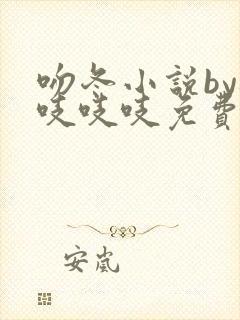 吻冬小說by
吱吱吱免費
安嵐